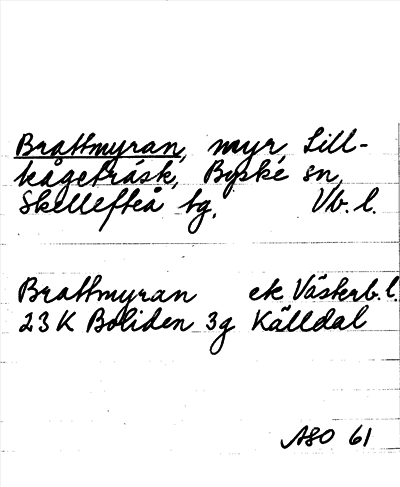 Brattmyran, myr, Lill-
kågeträsk, Byske sn,
Skellefteå tg, Vb. l.
Brattmyran ek Västerb. l.
23 K Boliden 3g Källdal
ASO 61